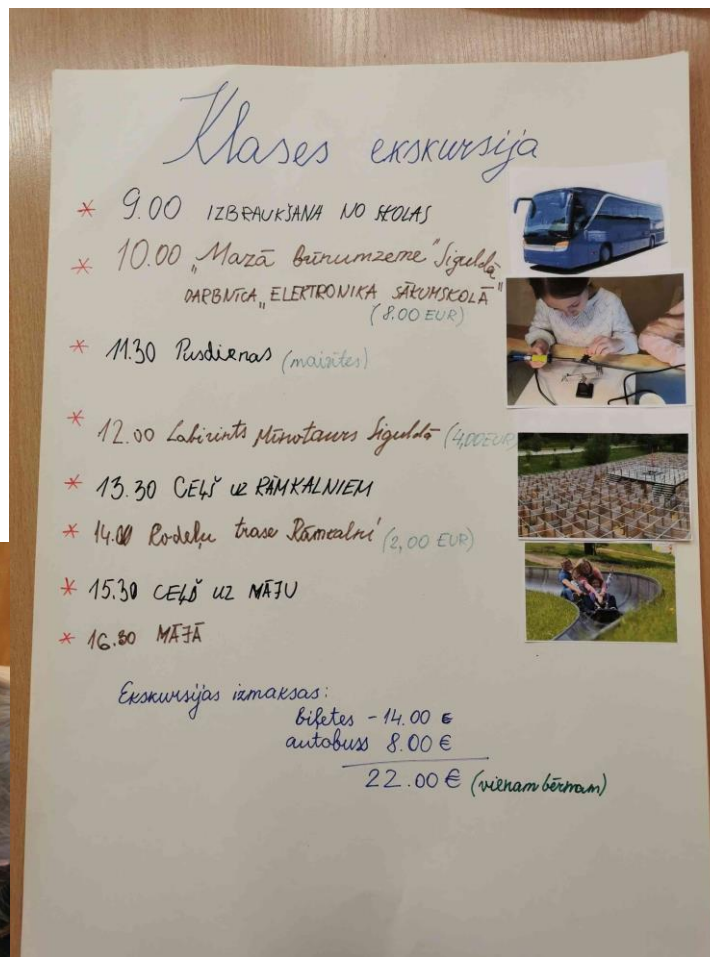 Klases ekskursija
* 9.00 IZBRAUKŠANA NO SKOLAS
* 10.00 „Mazā brīnumzeme" Siguldā
DARBNĪCA „ELEKTRONIKA SĀKUMSKOLĀ"
(8.00 EUR)
* 11.30 Pusdienas (maizītes)
* 12.00 Labirints Mīnotaurs Siguldā (4,00 EUR)
* 13.30 CEĻŠ UZ RĀMKALNIEM
* 14.00 Rodeļu trase Rāmkalni (2,00 EUR)
* 15.30 CEĻŠ UZ MĀJU
* 16.30 MĀJĀ
Ekskursijas izmaksas:
biļetes - 14.00 €
autobuss 8.00 €
22.00 € (vienam bērnam)